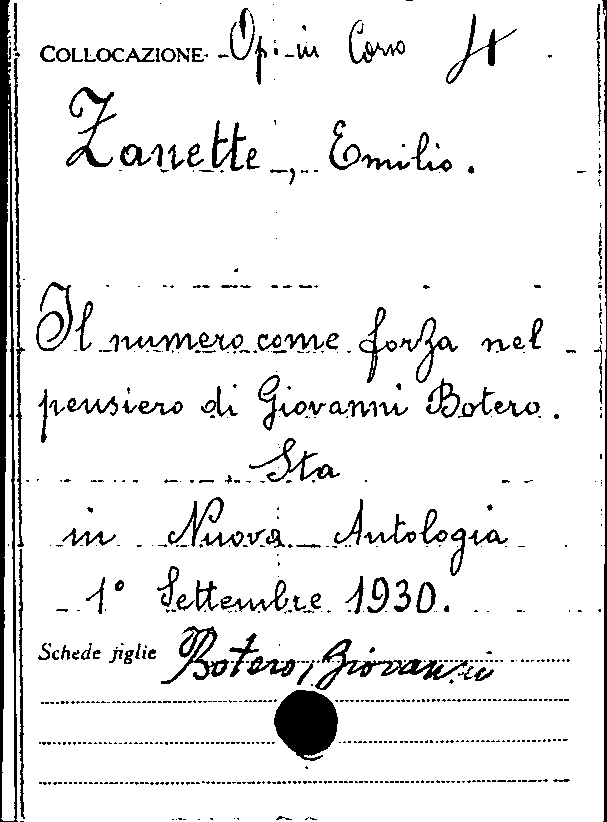 COLLOCAZIONE Op. in Corso 4
Zanette, Emilio.
Il numero come forza nel
pensiero di Giovanni Botero.
Sta
in Nuova Antologia
1° Settembre 1930.
Schede figlie Botero, Giovanni